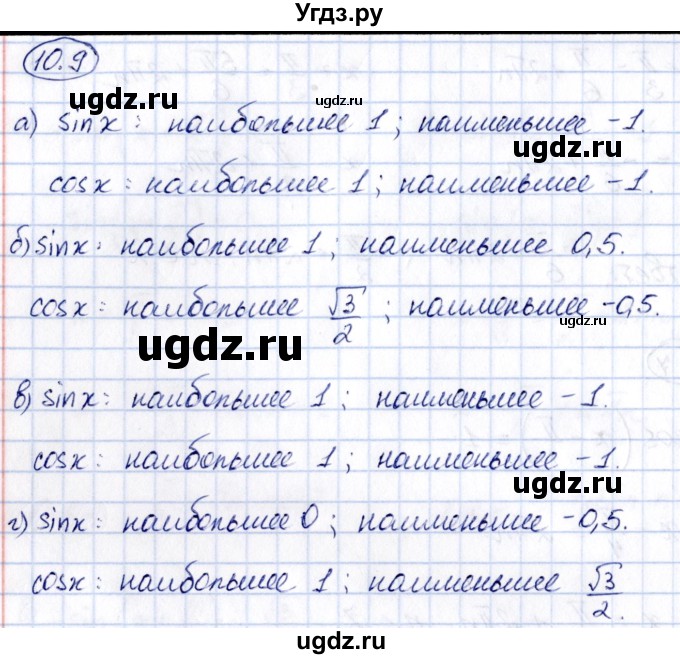 Угдз.ру
10.9
ugdz.ru
а) sin x : наибольшее 1 ; наименьшее -1.
ugdz.ru
cos x : наибольшее 1 ; наименьшее -1.
б) sin x : наибольшее 1 ; наименьшее 0,5.
cos x : наибольшее √3/2 ; наименьшее -0,5.
ugdz.ru
в) sin x : наибольшее 1 ; наименьшее -1.
cos x : наибольшее 1 ; наименьшее -1.
ugdz.ru
г) sin x : наибольшее 0 ; наименьшее -0,5.
cos x : наибольшее 1 ; наименьшее √3/2.
ugdz.ru